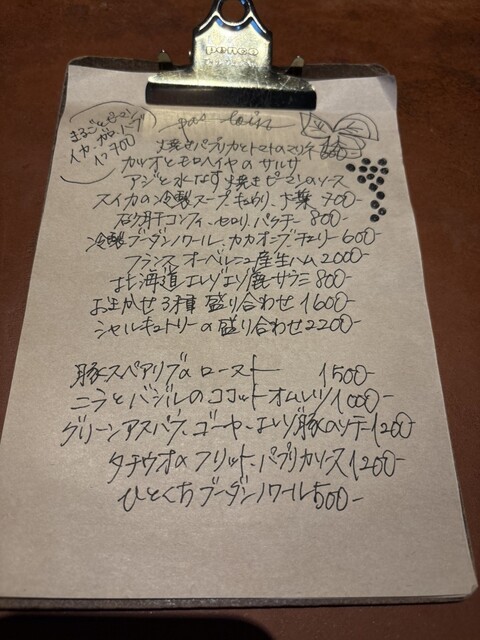 penco
pas loin
まるごとピーマン
イカ・ガローニ
1ヶ 700
焼きパプリカとトマトのマリネ 600
カツオとモロヘイヤのサルサ
アジと水なす 焼きピーマンのソース
スイカの冷製スープ キュウリ、大葉 700-
砂肝コンフィ、セロリ、パクチー 800-
冷製ブーダンノワール、カカオニブ、チェリー 600-
フランス オーベルニュ産生ハム 2000-
北海道エレゾエゾ鹿サラミ 800-
おまかせ3種盛り合わせ 1600-
シャルキュトリーの盛り合わせ 2200-
豚スペアリブのロースト 1500-
ニラとバジルのココットオムレツ 1000-
グリーンアスパラ、ゴーヤ、エレゾ豚のソテー 1200
タチウオのフリット、パプリカソース 1200-
ひとくちブーダンノワール 500-